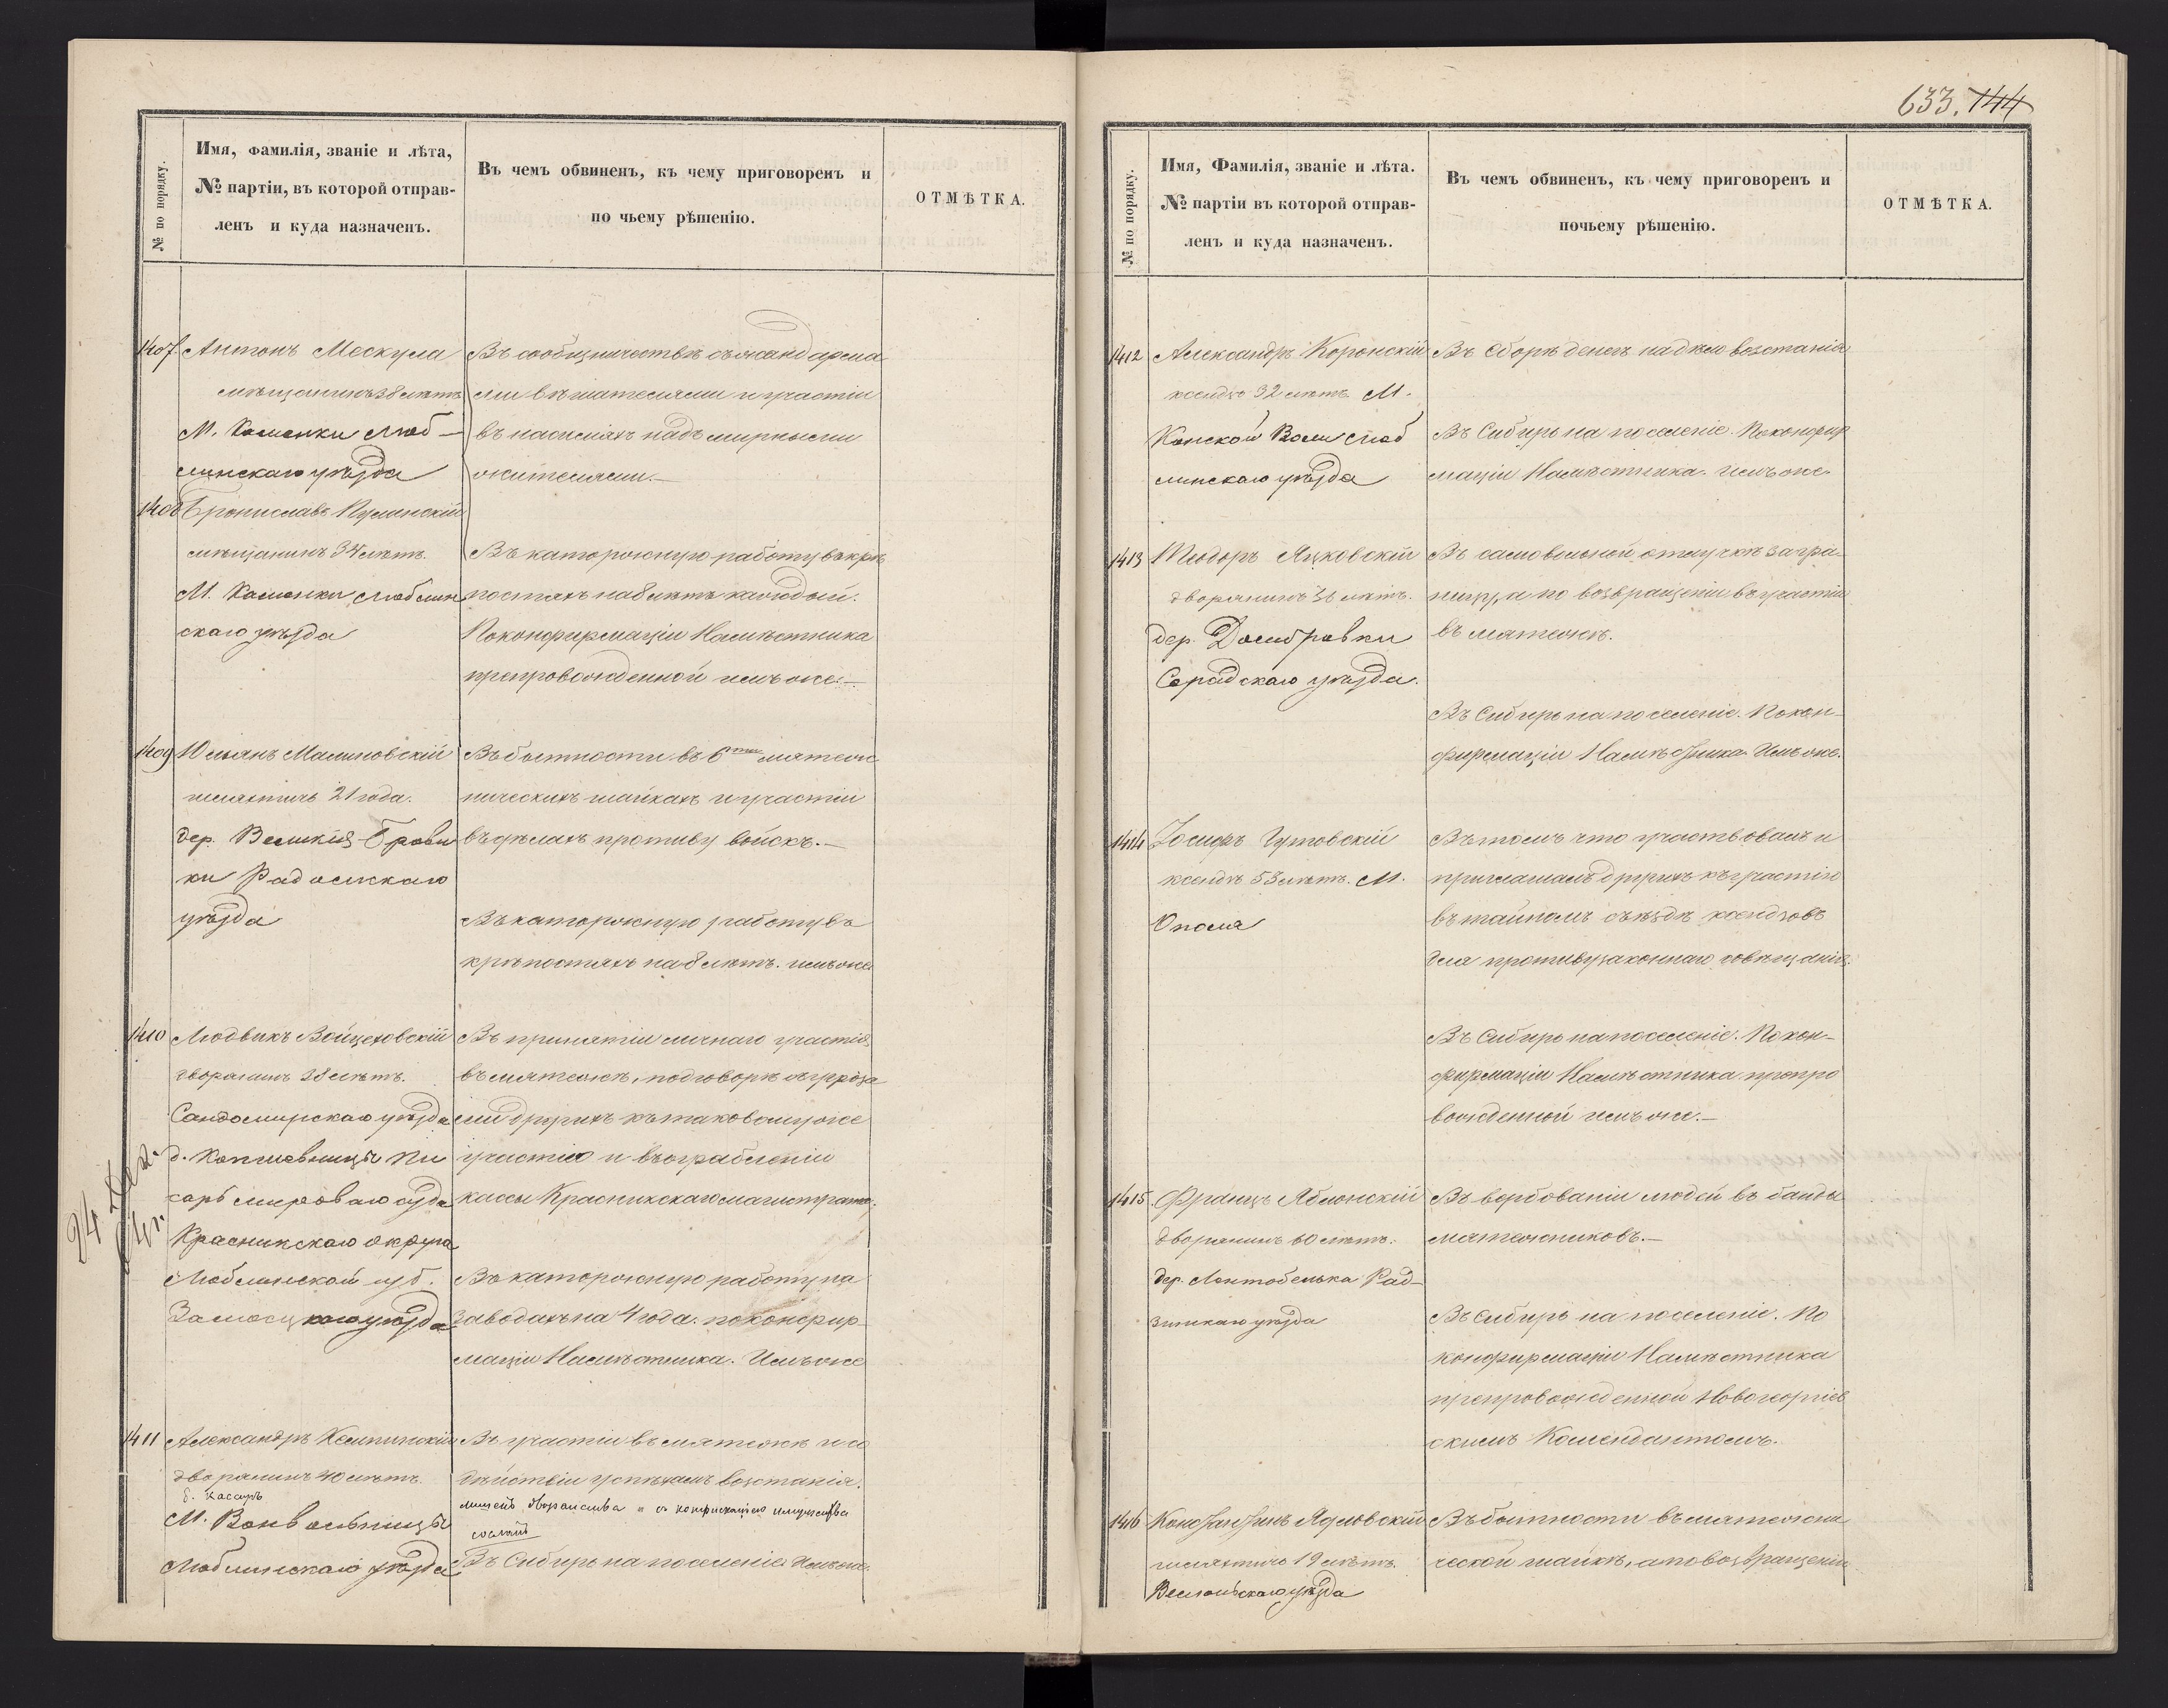 № по порядку.
Имя, фамилія, званіе и лѣта,
№ партіи, въ которой отправ-
ленъ и куда назначенъ.
Въ чемъ обвиненъ, къ чему приговоренъ и
по чьему рѣшенію.
ОТМѢТКА.
1407. Антонъ Мескула
мѣщанинъ 38 лѣтъ
М. Каменки Люб-
линскаго уѣзда
Въ сообщничествѣ съ жандарма
ми вѣшателями и участіи
въ насиліяхъ надъ мирными
жителями.—
1408 Брониславъ Пулинскій
мѣщанинъ 34 лѣтъ.
М. Каменки Люблин
скаго уѣзда
Въ каторожную работу въ крѣ
постяхъ на 8 лѣтъ каждый.
По конфирмаціи Намѣстника
препровожденной имъ же.—
1409 Юльянъ Малиновскій
шляхтичъ 21 года.
дер. Великія-Брови
ки Радомскаго
уѣзда
Въ бытности въ 6ти мятеж
ническихъ шайкахъ и участіи
въ дѣлахъ противу войскъ.—
Въ каторожную работу въ
крѣпостяхъ на 8 лѣтъ. имъ же
1410 Людвикъ Войцеховскій
дворянинъ 38 лѣтъ.
Сандомирскаго уѣзда
д. Пи
сарь мироваго суда
Красникскаго округа
Люблинской губ.
Замосцкаго уѣзда
Въ принятіи личнаго участія
въ мятежѣ, подговорѣ съ угроза
ми другихъ къ таковому же
участію и въ ограбленіи
кассы Красникскаго магистрата.
Въ каторожную работу на
заводахъ на 4 года. по конфир-
маціи Намѣстника. Имъ же
1411 Александръ Кемпинскій
дворянинъ 40 лѣтъ.
б. Кассиръ
М. Вонвольницы
Люблинскаго уѣзда
Въ участіи въ мятежѣ и со
дѣйствіи успѣхамъ возстанія.
лишенъ дворянства и съ конфискаціею имущества
Въ Сибирь на поселеніе Имъ же.
633. 144
№ по порядку.
Имя, Фамилія, званіе и лѣта.
№ партіи въ которой отправ-
ленъ и куда назначенъ.
Въ чемъ обвиненъ, къ чему приговоренъ и
почьему рѣшенію.
ОТМѢТКА.
1412 Александръ Коронскій
ксендзъ 32 лѣтъ. М.
Конской Воли Люб
линскаго уѣзда
Въ сборѣ денегъ на дѣло возстанія
Въ Сибирь на поселеніе. По конфир
маціи Намѣстника. имъ же.
1413 Теодоръ Яцковскій
дворянинъ 36 лѣтъ.
дер. Домбровки
Серадскаго уѣзда.
Въ самовольной отлучкѣ за гра-
ницу, а по возвращеніи въ участіи
въ мятежѣ.
Въ Сибирь на поселеніе. По кон-
фирмаціи Намѣстника Имъ же.
1414 Іосифъ Гутовскій
ксендзъ 53 лѣтъ. М.
Ополя
Въ томъ что участвовалъ и
приглашалъ другихъ къ участію
въ тайномъ съѣздѣ ксендзовъ
для противузаконнаго совѣщанія.
Въ Сибирь на поселеніе. По кон-
фирмаціи Намѣстника препро
вожденной имъ же.—
1415. Францъ Яблонскій
дворянинъ 60 лѣтъ.
дер. Рад-
зинскаго уѣзда
Въ вербованіи людей въ банды
мятежниковъ.—
Въ Сибирь на поселеніе. По
конфирмаціи Намѣстника
препровожденной Новогеоргіев
скимъ Комендантомъ.
1416 Константинъ
шляхтичъ 19 лѣтъ.
Велюньскаго уѣзда
Въ бытности въ мятежни
ческой шайкѣ, а по возвращеніи